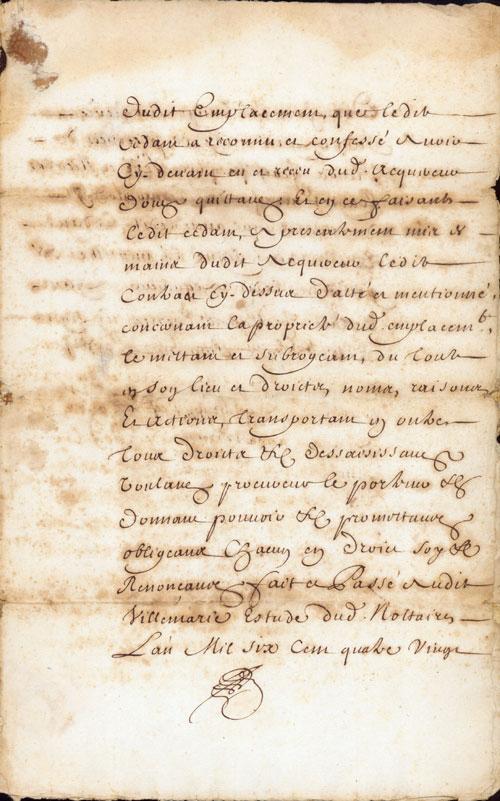 dudit Emplacement, que ledit
cedant a reconnu et confessé avoir
Cy-devant eu et receu dud. Acquereur
dont quittance Et en ce faisant
ledit cedant, a presentement mis es
mains dudit Acquereur ledit
Contract Cy-dessus datté et mentionné
concernant la proprieté dud. emplacemt,
le mettant et subrogeant, du tout
en son lieu et droicts, noms, raisons
Et actions, Transportant en outre
tous droicts &c dessaisissant
voulant procureur le porteur &c
donnant pouvoir &c promettant
obligeant Chacun en droict soy &c
Renonçant fait et Passé audit
Villemarie Estude dud. Nottaire
L'an Mil six Cent quatre Vingt